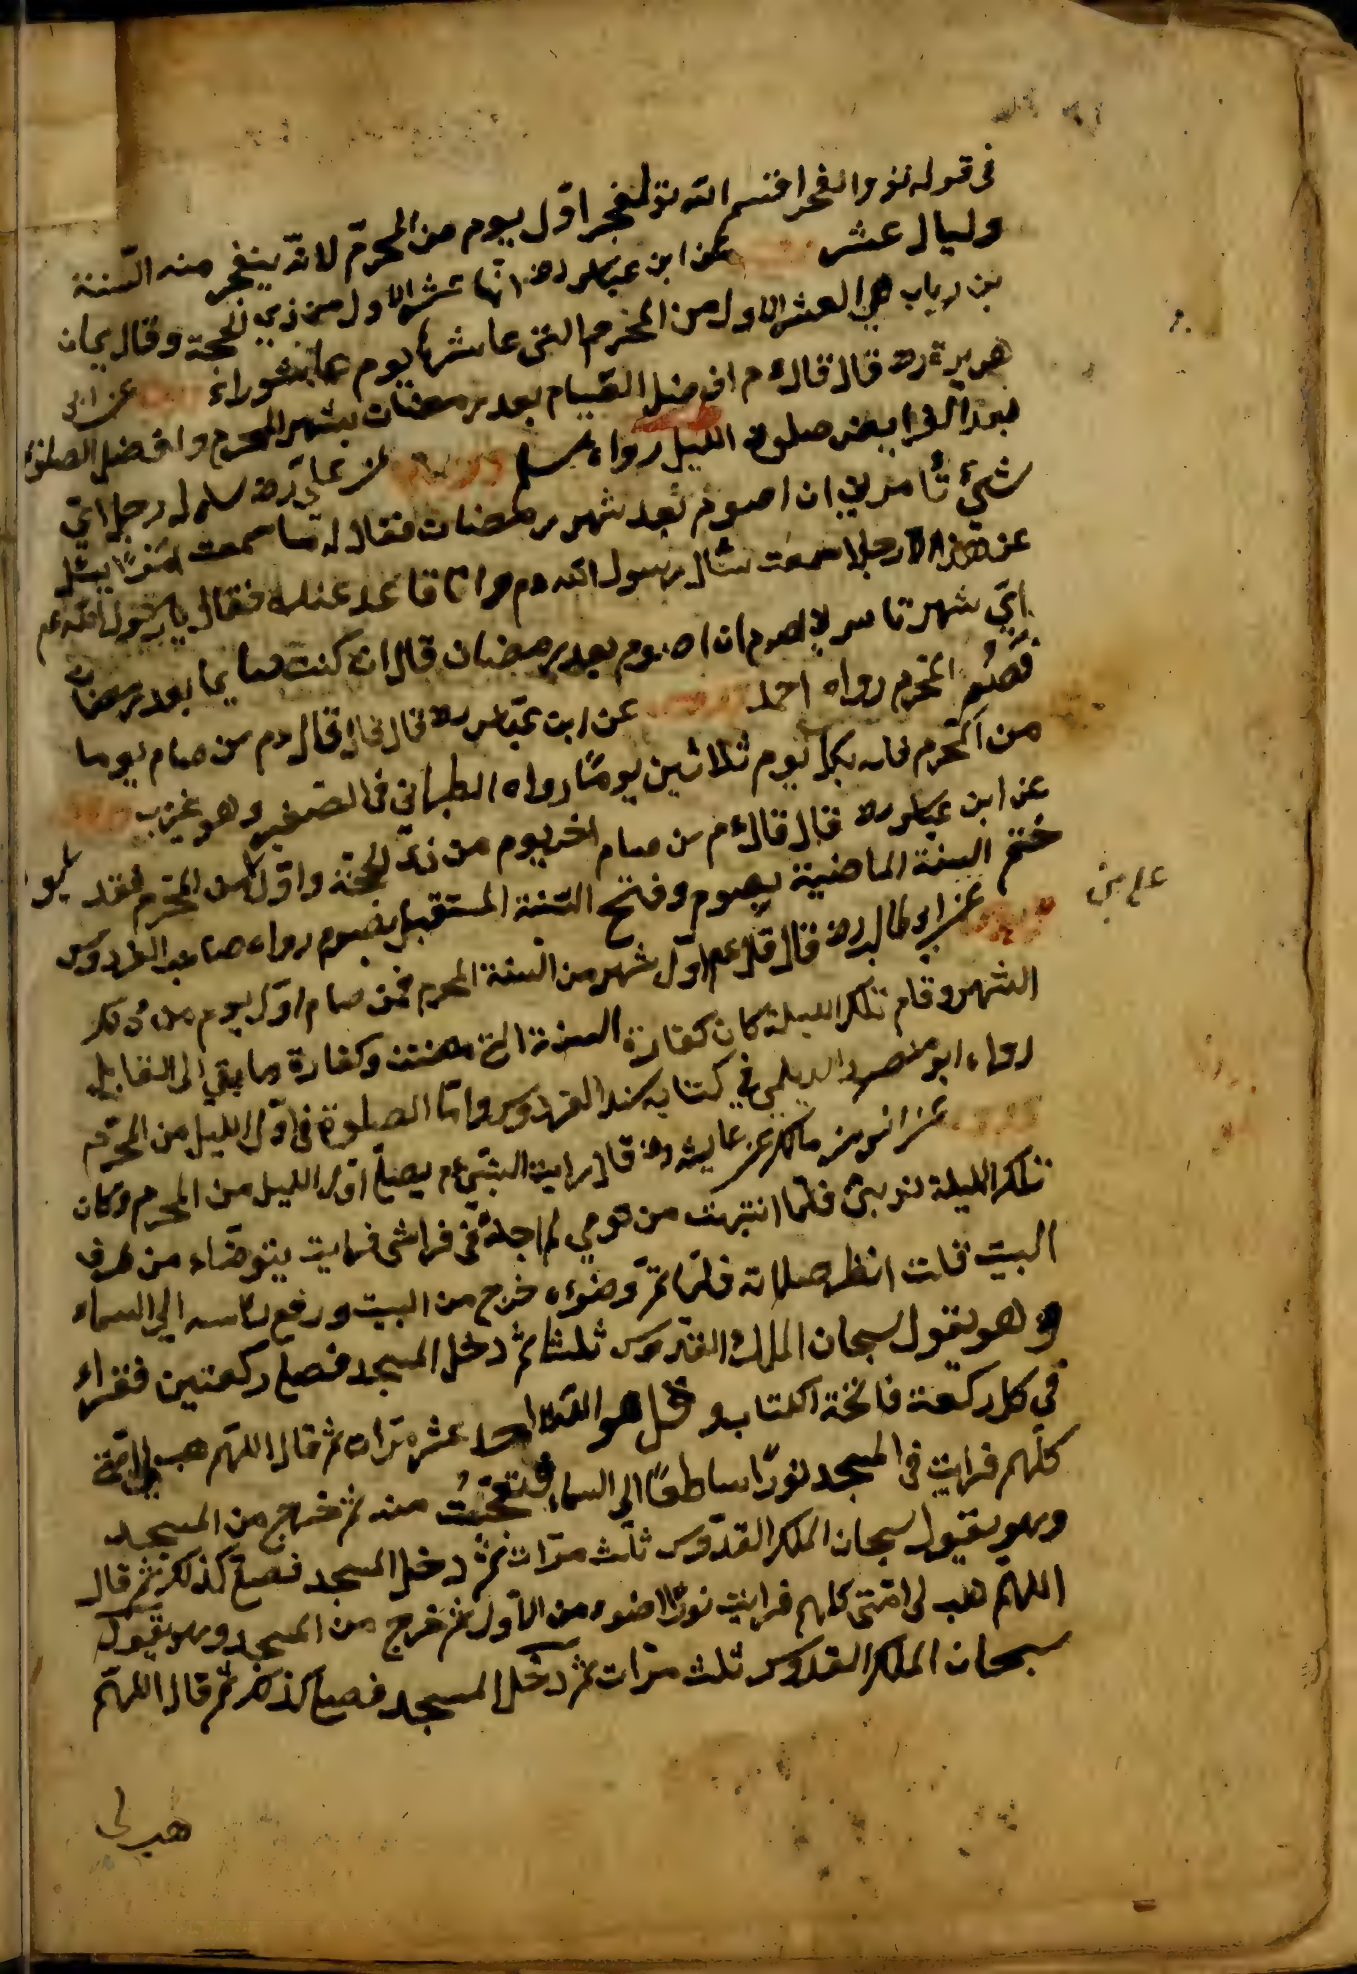 فى قوله تع والفجر اقسم الله تع لفجر اوّل يوم من المحرّم لانّه ينفجر منه السّنة
وليال عشر عن ابن عباس رض انّها عشر الاول من ذي الحجّة وقال يمان
بن رياب هي العشر الاول من المحرم التى عاشرها يوم عاشوراء عن ابى
هريرة رض قال قال ءم افضل الصّيام بعد رمضان شهر المحرم وافضل الصلوة
بعد الفرايض صلوة الليل رواه مسلم عن على رض سأله رجل اىّ
شهر تأمرنى ان اصوم بعد شهر رمضان فقال له ما سمعت احدًا يسئل
عن هذا الا رجلا سمعت سئال رسول الله ءم وانا قاعد عنده فقال يا رسول الله
اىّ شهر تأمرنى ان اصوم بعد رمضان قال ان كنت صايما بعد رمضان
فصُم المحرم رواه احمد عن ابن عبّاس رض قال قال ءم من صام يوما
من المحرم فله بكل يوم ثلاثين يومًا رواه الطبرانى فى الصّغير وهو غريب
عن ابن عباس رض قال قال ءم من صام اخر يوم من ذى الحجّة واوّل من المحرّم فقد
ختم السنة الماضية بصوم وفتح السّنة المستقبل بصوم رواه صاحب الفردوس
طالب رض قال قال عم اوّل شهر من السنة المحرم فمن صام اوّل يوم من ذلك
الشهر وقام تلك الليلة كان كفارة السنة التى مضت وكفارة ما بقى الى القابل
رواه ابو منصور الديلمى فى كتابه مسند الفردوس وامّا الصلوة فى اوّل الليل من المحرّم
عن انس بن مالك عن عايشه رض قال رايت النبىّ ءم يصلّى اوّل الليل من المحرم وكان
تلك الليلة نوبتى فلمّا انتبهت من نومي لم اجده فى فراشى فرايت يتوضّاء من طرف
البيت قلت انظر صلاته فلمّا تمّ وضوءه خرج من البيت ورفع رأسه الى السماء
وهو يقول سبحان الملك القدّوس ثلثا ثمّ دخل المسجد فصلّى ركعتين فقراء
فى كل ركعة فاتحة الكتاب وقل هو الله احد عشر مرّات ثم قال اللهمّ هب لى امّتى
كلّهم فرايت فى المسجد نورًا ساطعًا الى السماء فتعجّبت منه ثم خرج من المسجد
وهو يقول سبحان الملك القدّوس ثلث مرّات ثمّ دخل المسجد فصلّى كذلك ثمّ قال
اللهمّ هب لى امّتى كلهم فرايت نورًا اضوء من الاول ثمّ خرج من المسجد وهو يقول
سبحان الملك القدوس ثلث مرّات ثمّ دخل المسجد فصلّى كذلك ثمّ قال اللهمّ
هب لى